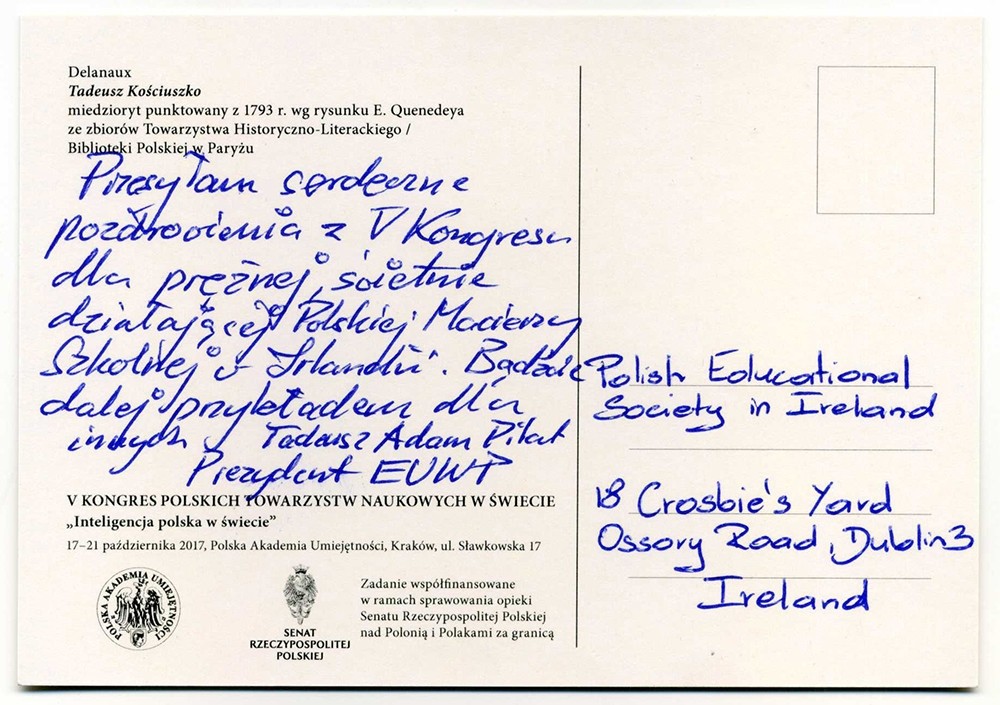 Delanaux
Tadeusz Kościuszko
miedzioryt punktowany z 1793 r. wg rysunku E. Quenedeya
ze zbiorów Towarzystwa Historyczno-Literackiego /
Biblioteki Polskiej w Paryżu
Przesyłam serdeczne
pozdrowienia z V Kongresu
dla prężnej, świetnie
działającej Polskiej Macierzy
Szkolnej w Irlandii. Bądźcie
dalej przykładem dla
innych Tadeusz Adam Pilat
Prezydent EUWP
V KONGRES POLSKICH TOWARZYSTW NAUKOWYCH W ŚWIECIE
„Inteligencja polska w świecie”
17–21 października 2017, Polska Akademia Umiejętności, Kraków, ul. Sławkowska 17
POLSKA AKADEMIA UMIEJĘTNOŚCI
SENAT
RZECZYPOSPOLITEJ
POLSKIEJ
Zadanie współfinansowane
w ramach sprawowania opieki
Senatu Rzeczypospolitej Polskiej
nad Polonią i Polakami za granicą
Polish Educational
Society in Ireland
18 Crosbie's Yard
Ossory Road, Dublin 3
Ireland